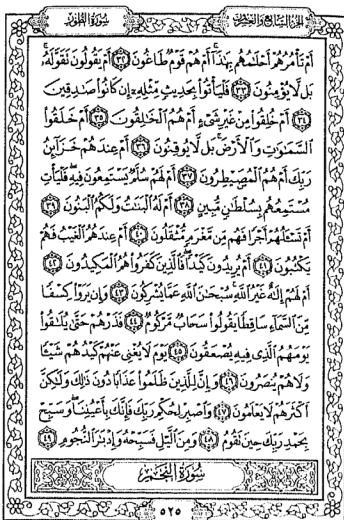 الجزء السابع والعشرون سورة الطور
أَمْ تَأْمُرُهُمْ أَحْلَٰمُهُم بِهَٰذَآ أَمْ هُمْ قَوْمٌ طَاغُونَ ٣٢ أَمْ يَقُولُونَ تَقَوَّلَهُۥ
بَل لَّا يُؤْمِنُونَ ٣٣ فَلْيَأْتُوا۟ بِحَدِيثٍ مِّثْلِهِۦٓ إِن كَانُوا۟ صَٰدِقِينَ
٣٤ أَمْ خُلِقُوا۟ مِنْ غَيْرِ شَىْءٍ أَمْ هُمُ ٱلْخَٰلِقُونَ ٣٥ أَمْ خَلَقُوا۟
ٱلسَّمَٰوَٰتِ وَٱلْأَرْضَ بَل لَّا يُوقِنُونَ ٣٦ أَمْ عِندَهُمْ خَزَآئِنُ
رَبِّكَ أَمْ هُمُ ٱلْمُصَۣيْطِرُونَ ٣٧ أَمْ لَهُمْ سُلَّمٌ يَسْتَمِعُونَ فِيهِ فَلْيَأْتِ
مُسْتَمِعُهُم بِسُلْطَٰنٍ مُّبِينٍ ٣٨ أَمْ لَهُ ٱلْبَنَٰتُ وَلَكُمُ ٱلْبَنُونَ ٣٩
أَمْ تَسْـَٔلُهُمْ أَجْرًا فَهُم مِّن مَّغْرَمٍ مُّثْقَلُونَ ٤٠ أَمْ عِندَهُمُ ٱلْغَيْبُ فَهُمْ
يَكْتُبُونَ ٤١ أَمْ يُرِيدُونَ كَيْدًا فَٱلَّذِينَ كَفَرُوا۟ هُمُ ٱلْمَكِيدُونَ ٤٢
أَمْ لَهُمْ إِلَٰهٌ غَيْرُ ٱللَّهِ سُبْحَٰنَ ٱللَّهِ عَمَّا يُشْرِكُونَ ٤٣ وَإِن يَرَوْا۟ كِسْفًا
مِّنَ ٱلسَّمَآءِ سَاقِطًا يَقُولُوا۟ سَحَابٌ مَّرْكُومٌ ٤٤ فَذَرْهُمْ حَتَّىٰ يُلَٰقُوا۟
يَوْمَهُمُ ٱلَّذِى فِيهِ يُصْعَقُونَ ٤٥ يَوْمَ لَا يُغْنِى عَنْهُمْ كَيْدُهُمْ شَيْـًٔا
وَلَا هُمْ يُنصَرُونَ ٤٦ وَإِنَّ لِلَّذِينَ ظَلَمُوا۟ عَذَابًا دُونَ ذَٰلِكَ وَلَٰكِنَّ
أَكْثَرَهُمْ لَا يَعْلَمُونَ ٤٧ وَٱصْبِرْ لِحُكْمِ رَبِّكَ فَإِنَّكَ بِأَعْيُنِنَا وَسَبِّحْ
بِحَمْدِ رَبِّكَ حِينَ تَقُومُ ٤٨ وَمِنَ ٱلَّيْلِ فَسَبِّحْهُ وَإِدْبَٰرَ ٱلنُّجُومِ ٤٩
سُورَةُ النَّجْمِ
٥٢٥